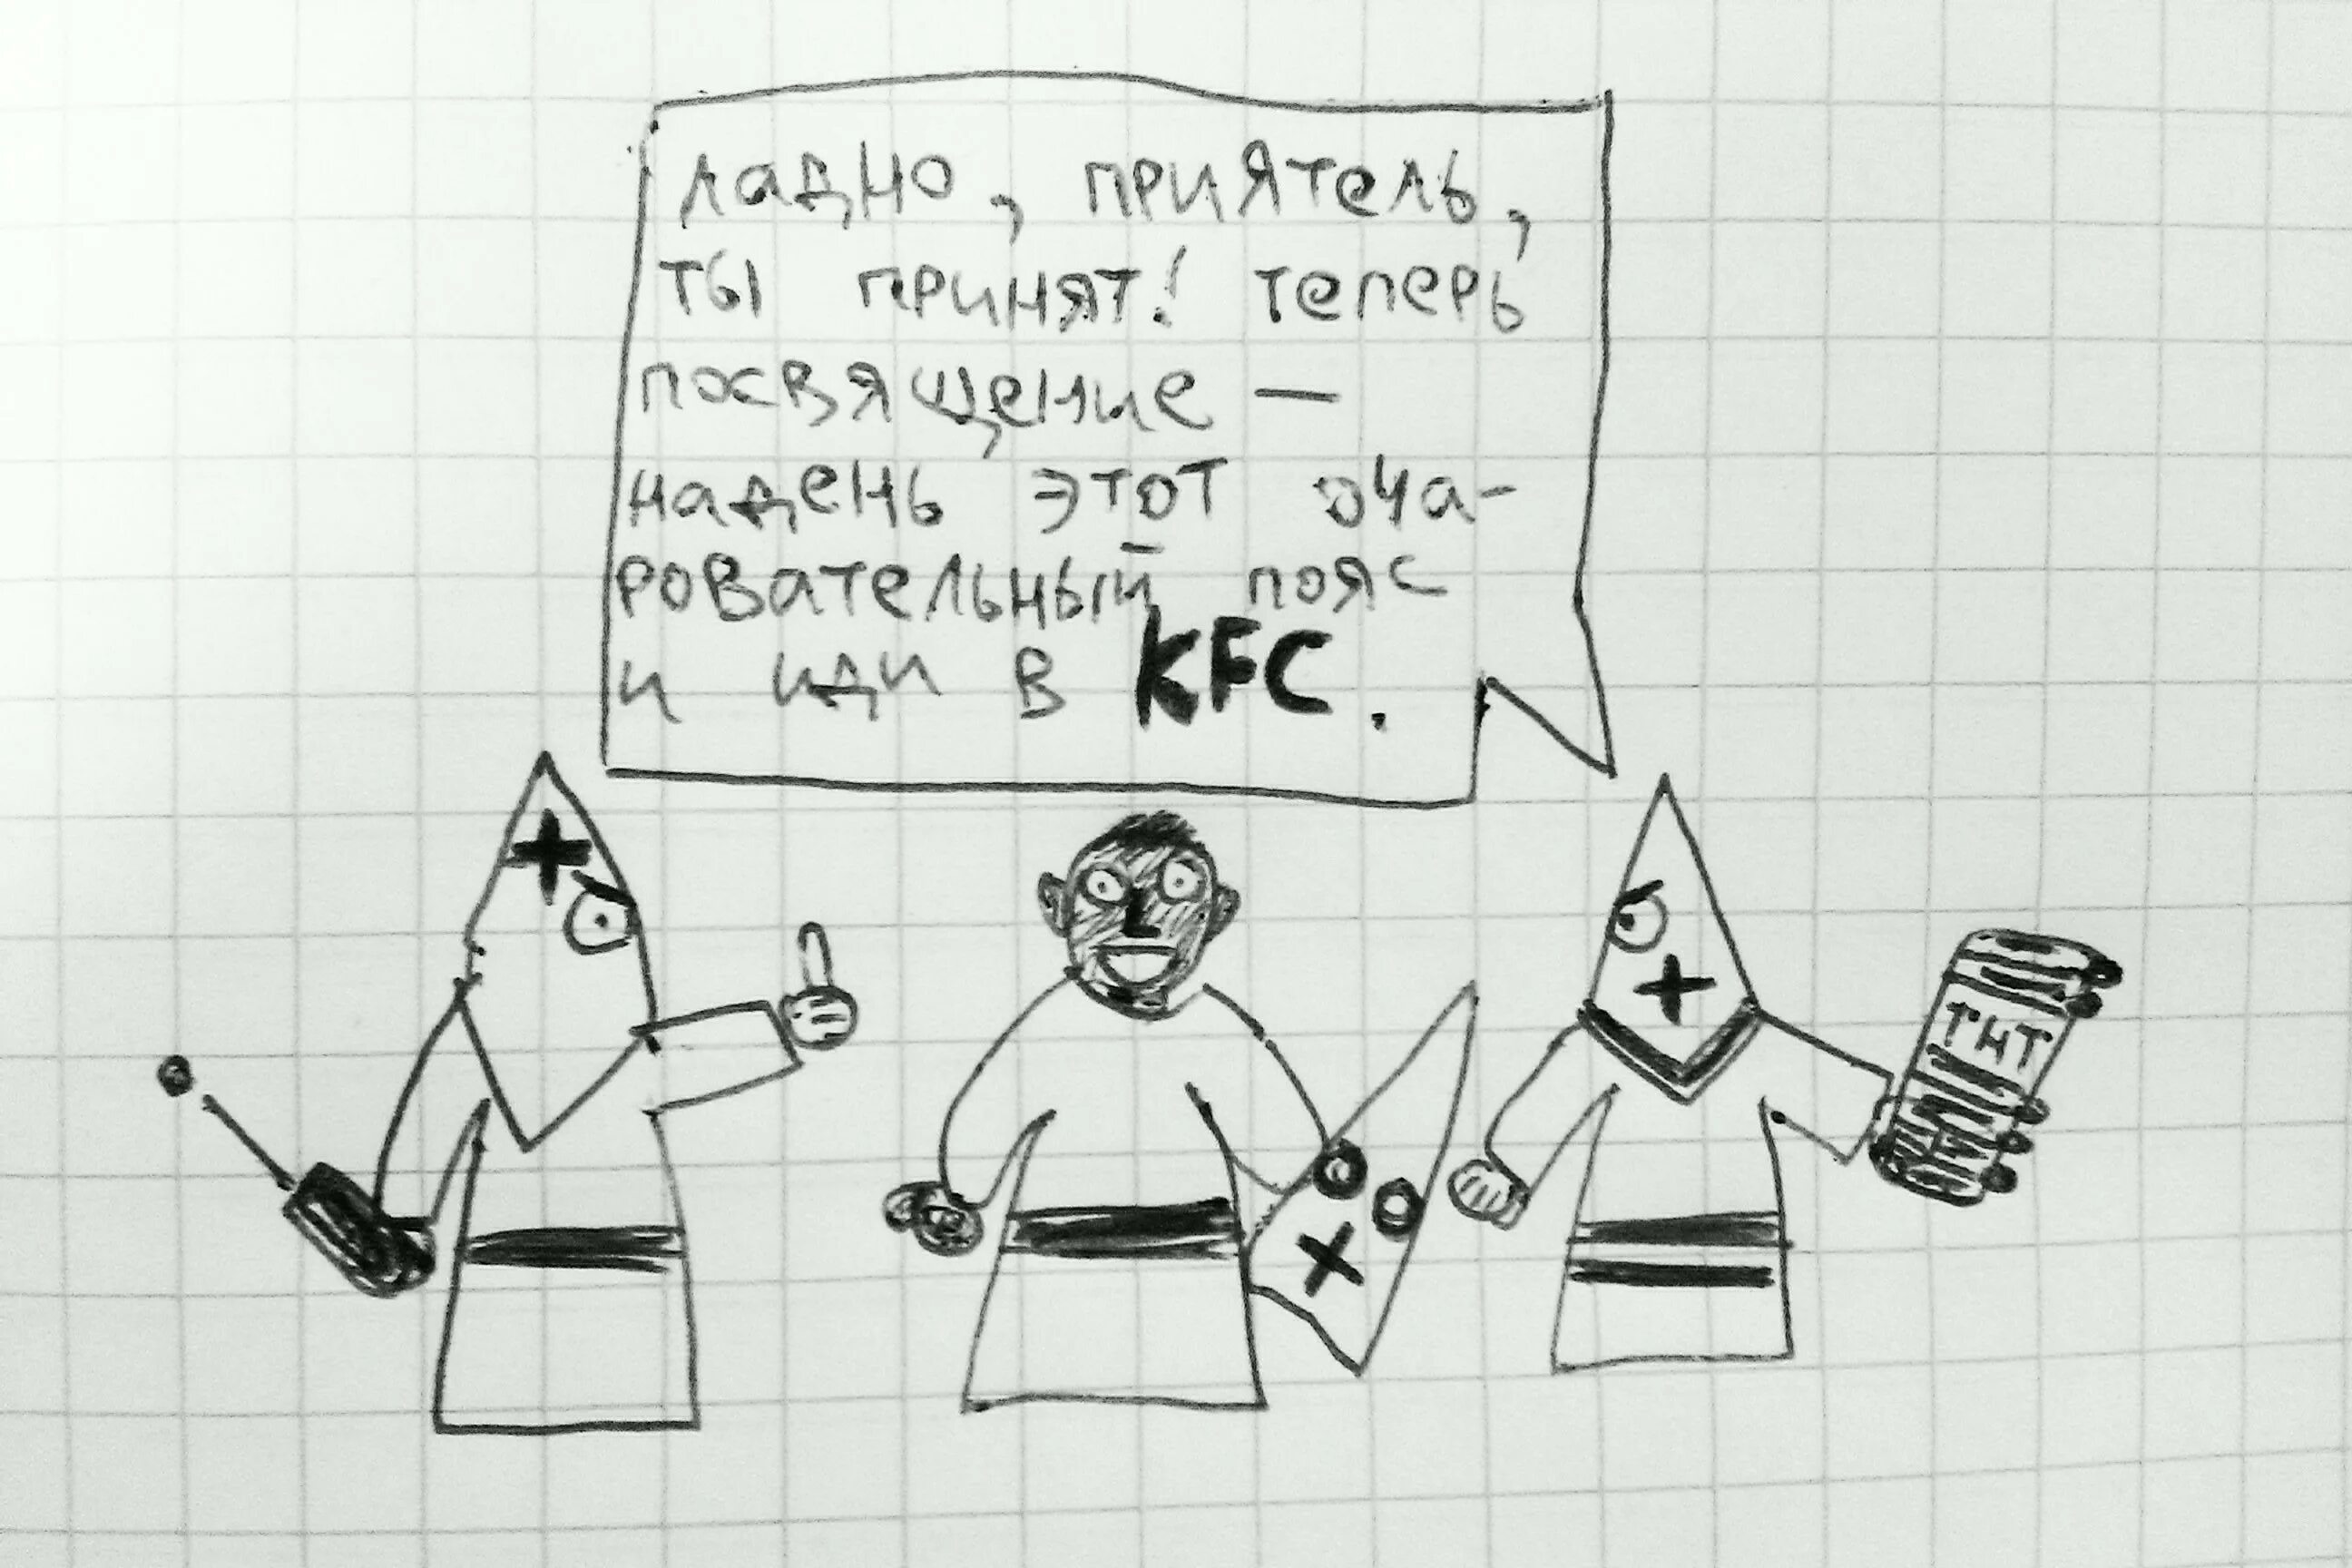 ладно, приятель,
ты принят! теперь
посвящение —
надень этот оча-
ровательный пояс
и иди в KFC.
ТНТ